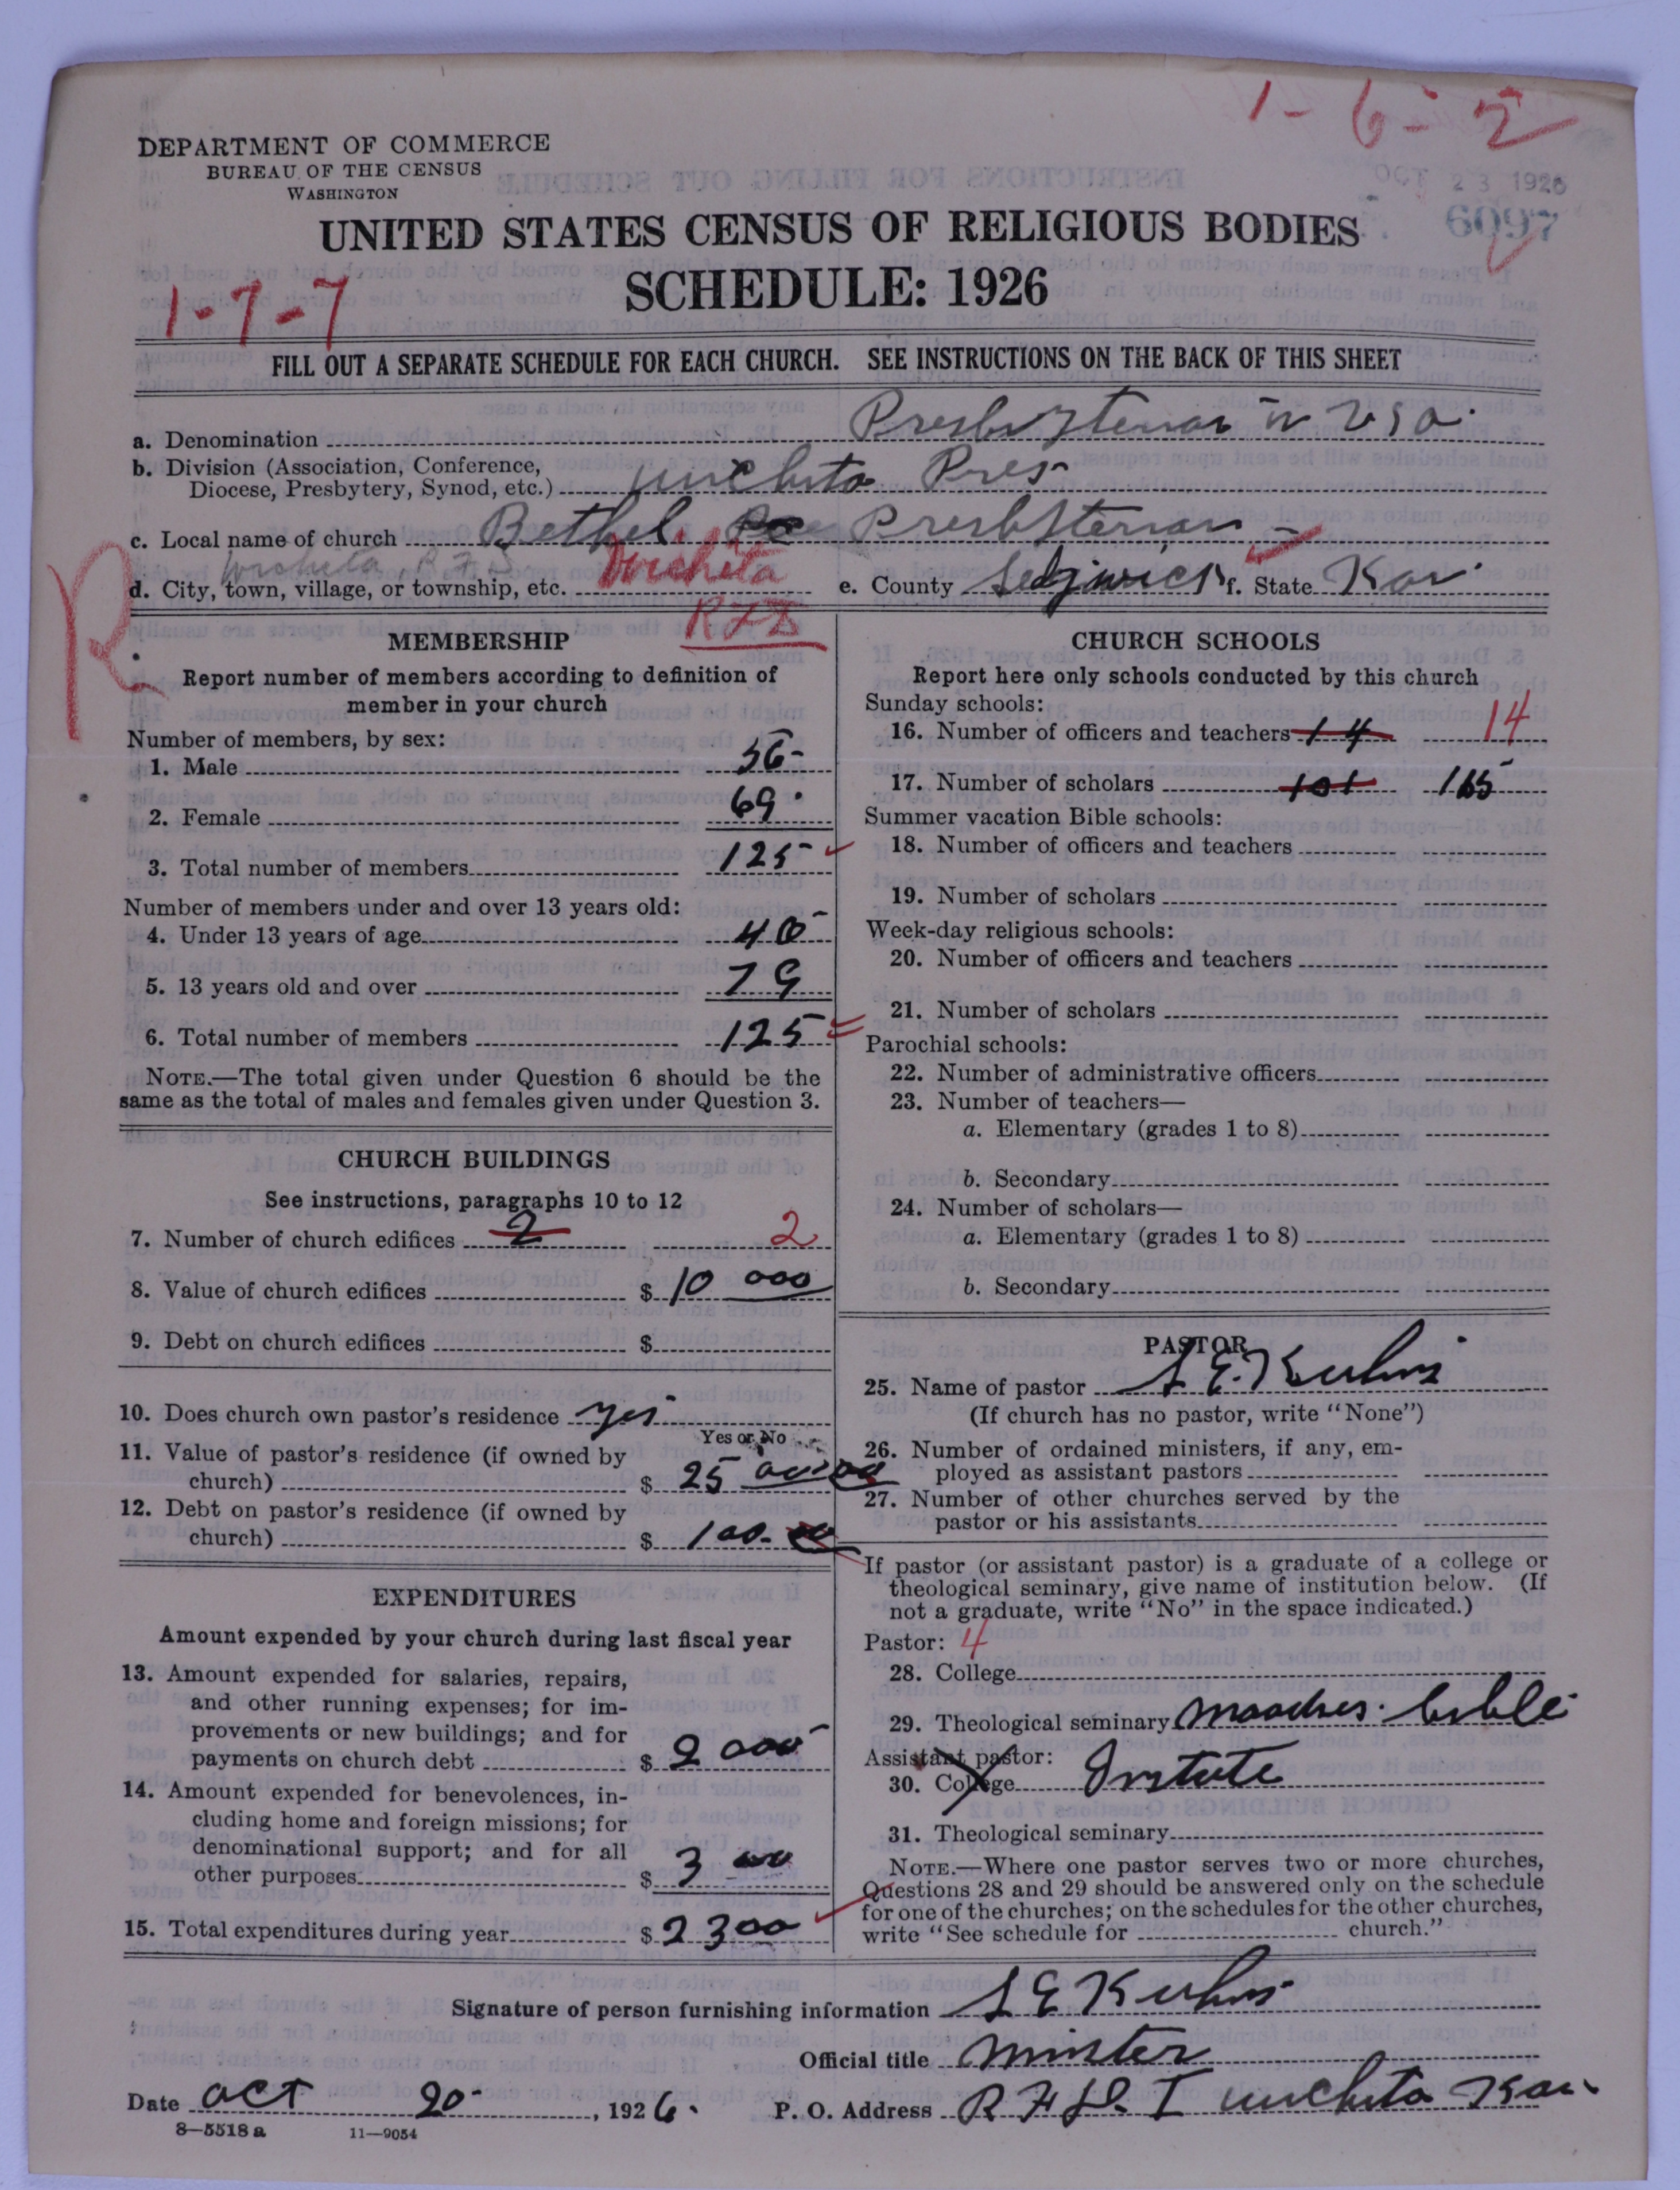 1-6-2
DEPARTMENT OF COMMERCE
BUREAU OF THE CENSUS
WASHINGTON
OCT 23 1926
6097
UNITED STATES CENSUS OF RELIGIOUS BODIES
SCHEDULE: 1926
1-7-7
FILL OUT A SEPARATE SCHEDULE FOR EACH CHURCH. SEE INSTRUCTIONS ON THE BACK OF THIS SHEET
a. Denomination Presbyterian in USA
b. Division (Association, Conference,
Diocese, Presbytery, Synod, etc.) Wichita Pres
c. Local name of church Bethel Presbyterian
Wichita, R.F.D.
d. City, town, village, or township, etc. Wichita e. County Sedgwick f. State Kan.
RFD
R
MEMBERSHIP
Report number of members according to definition of
member in your church
Number of members, by sex:
1. Male 56
2. Female 69
3. Total number of members 125
Number of members under and over 13 years old:
4. Under 13 years of age
5. 13 years old and over 79
6. Total number of members 125
NOTE.—The total given under Question 6 should be the
same as the total of males and females given under Question 3.
CHURCH BUILDINGS
See instructions, paragraphs 10 to 12
7. Number of church edifices 2 2
8. Value of church edifices $ 10 000
9. Debt on church edifices $
10. Does church own pastor's residence yes
Yes or No
11. Value of pastor's residence (if owned by
church) $ 25
12. Debt on pastor's residence (if owned by
church) $ 100.
EXPENDITURES
Amount expended by your church during last fiscal year
13. Amount expended for salaries, repairs,
and other running expenses; for im-
provements or new buildings; and for
payments on church debt $ 2 000
14. Amount expended for benevolences, in-
cluding home and foreign missions; for
denominational support; and for all
other purposes $ 3 00
15. Total expenditures during year $ 2300
CHURCH SCHOOLS
Report here only schools conducted by this church
Sunday schools:
16. Number of officers and teachers 14 14
17. Number of scholars 101 165
Summer vacation Bible schools:
18. Number of officers and teachers
19. Number of scholars
Week-day religious schools:
20. Number of officers and teachers
21. Number of scholars
Parochial schools:
22. Number of administrative officers
23. Number of teachers—
a. Elementary (grades 1 to 8)
b. Secondary
24. Number of scholars—
a. Elementary (grades 1 to 8)
b. Secondary
PASTOR
25. Name of pastor S. E. Kuhns
(If church has no pastor, write "None")
26. Number of ordained ministers, if any, em-
ployed as assistant pastors
27. Number of other churches served by the
pastor or his assistants
If pastor (or assistant pastor) is a graduate of a college or
theological seminary, give name of institution below. (If
not a graduate, write "No" in the space indicated.)
Pastor: 4
28. College
29. Theological seminary Moodies bible
Assistant pastor:
30. College Instute
31. Theological seminary
NOTE.—Where one pastor serves two or more churches,
Questions 28 and 29 should be answered only on the schedule
for one of the churches; on the schedules for the other churches,
write "See schedule for church."
Signature of person furnishing information S E Kuhns
Official title Minster
Date Oct 20 , 1926. P. O. Address R F D. I Wichita Kan.
8—5518 a 11—9054